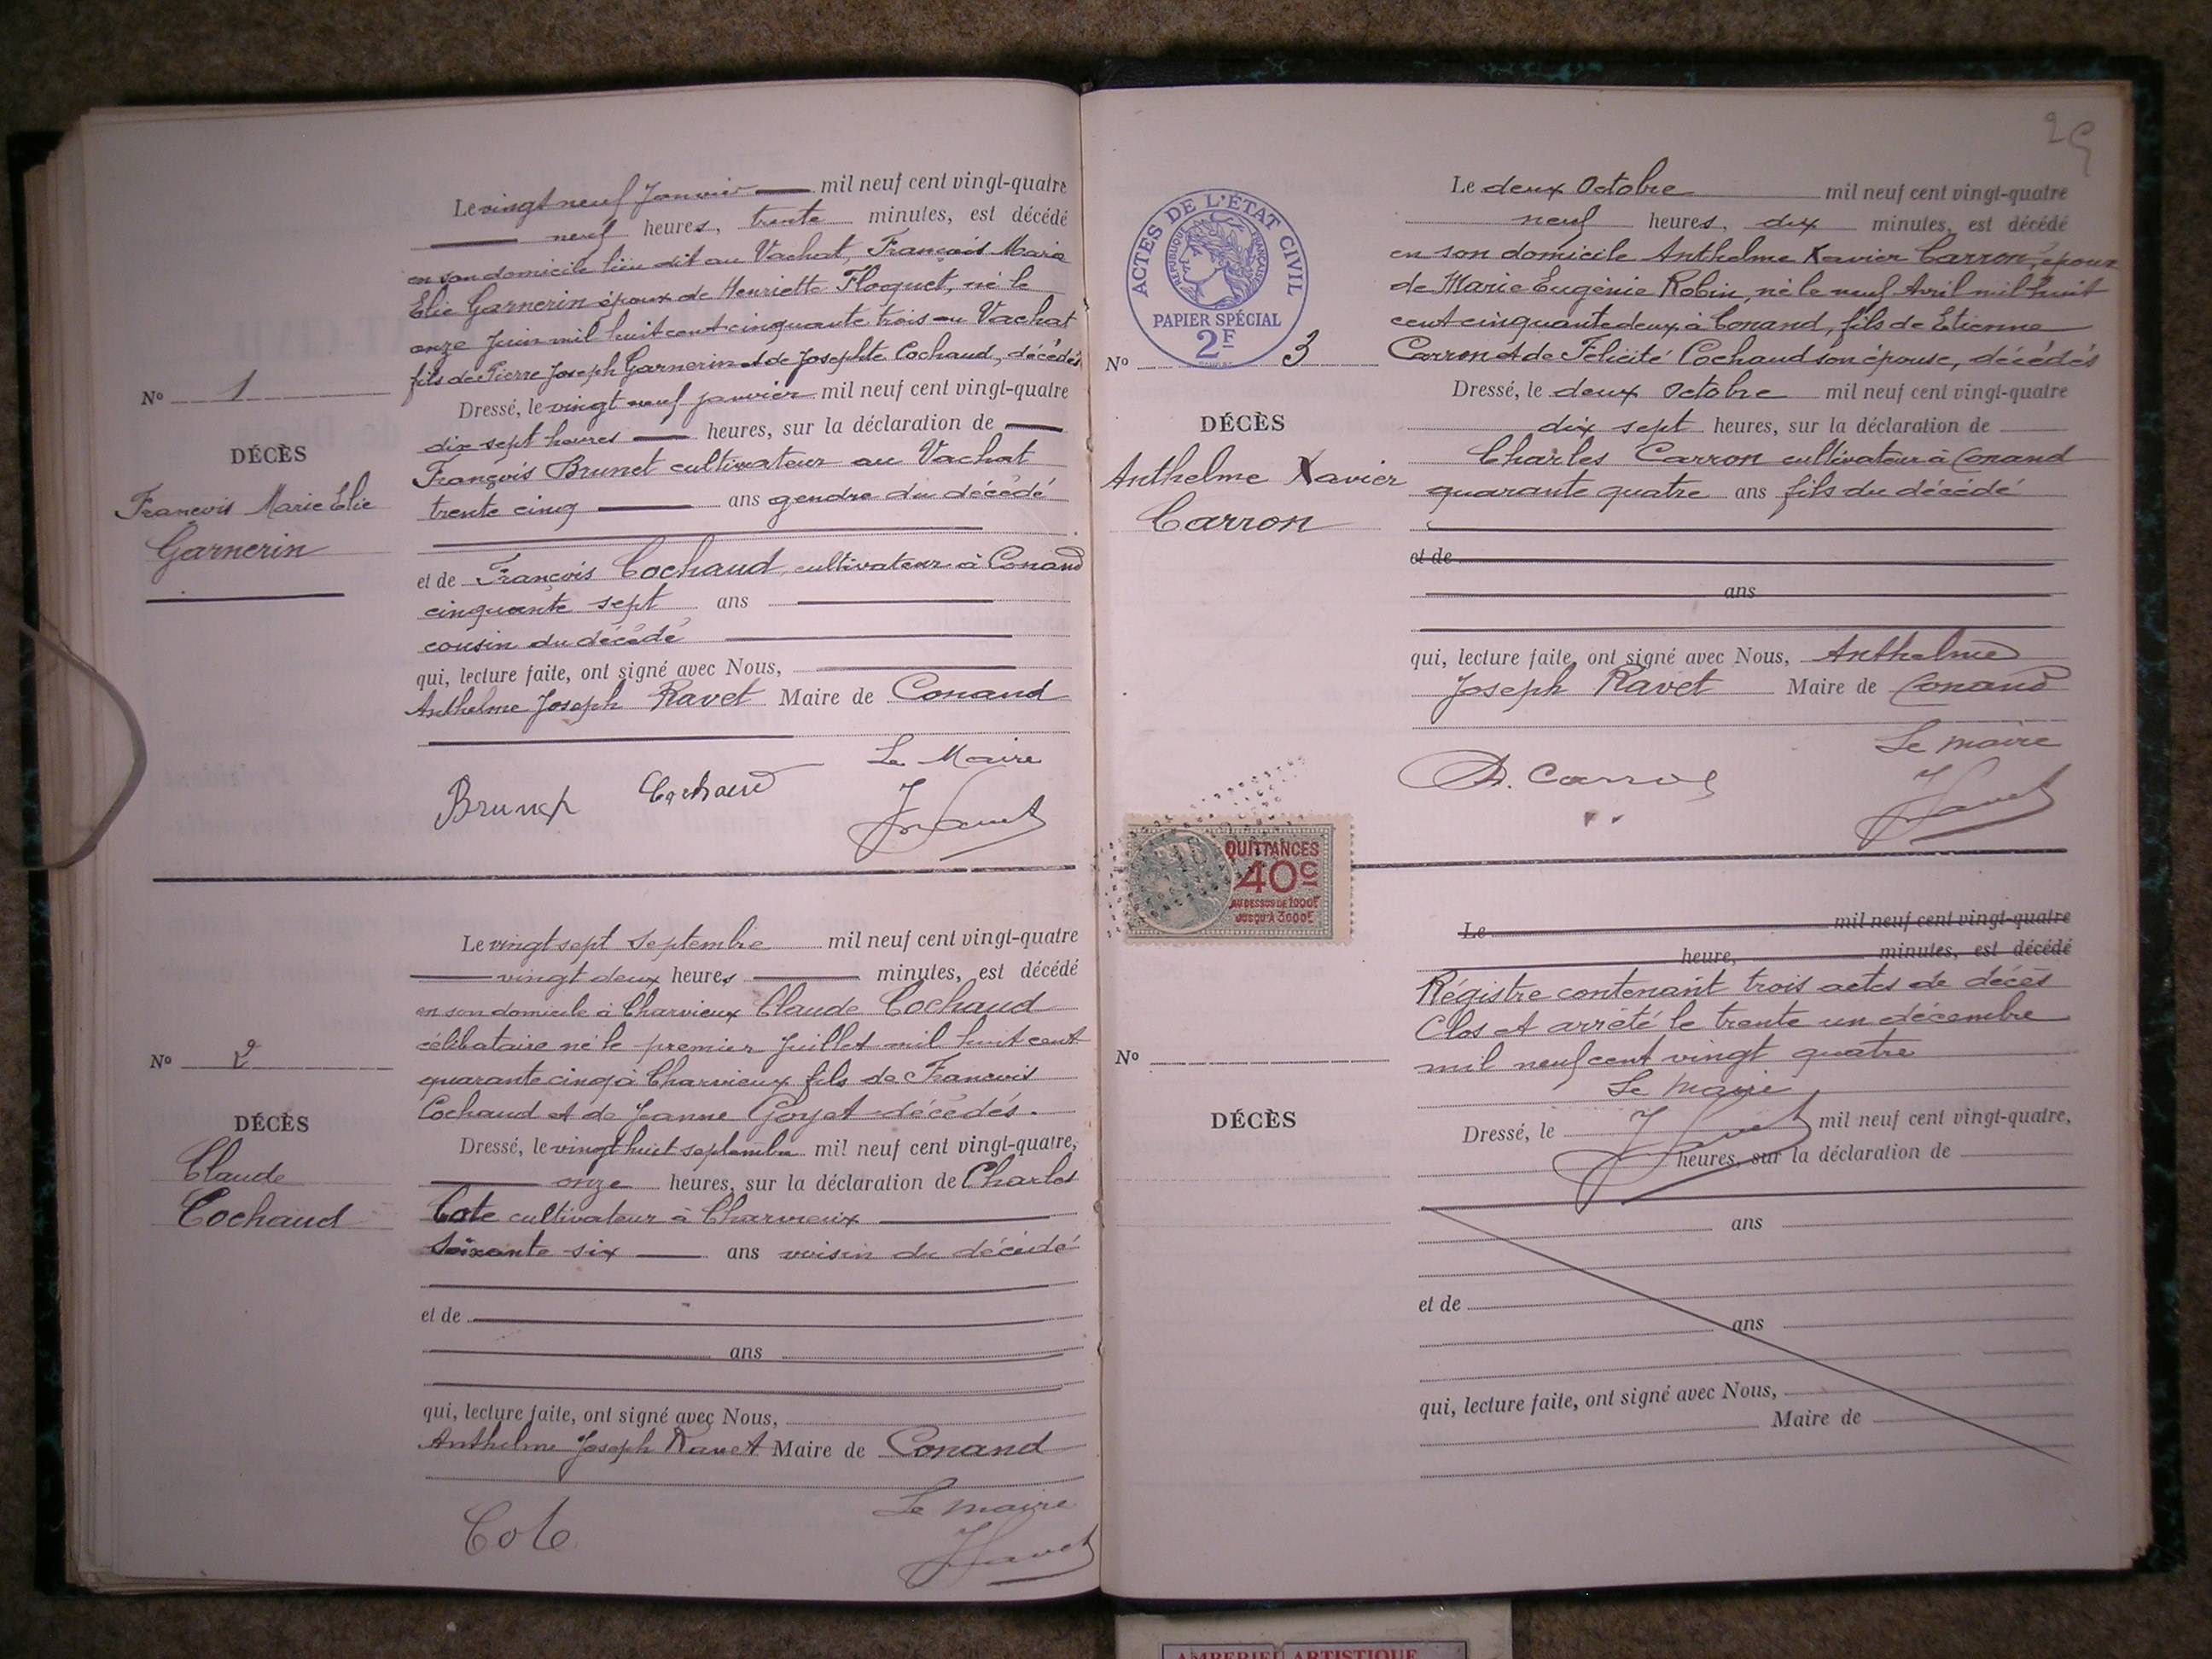 Le vingt neuf Janvier mil neuf cent vingt-quatre
neuf heures, trente minutes, est décédé
en son domicile lieu dit au Vachat, François Marie
Elie Garnerin époux de Henriette Floquet, né le
onze Juin mil huit cent cinquante trois au Vachat
fils de Pierre Joseph Garnerin et de Josephte Cochaud, décédés
No 1
Dressé, le vingt neuf janvier mil neuf cent vingt-quatre
dix sept heures heures, sur la déclaration de
DÉCÈS
François Brunet cultivateur au Vachat
François Marie Elie
trente cinq ans gendre du décédé
Garnerin
et de François Cochaud, cultivateur à Conand
cinquante sept ans
cousin du décédé
qui, lecture faite, ont signé avec Nous,
Anthelme Joseph Ravet Maire de Conand
Le Maire
Brunet Cochaud JRavet
Le vingt sept Septembre mil neuf cent vingt-quatre
vingt deux heures minutes, est décédé
en son domicile à Charvieux Claude Cochaud
célibataire né le premier Juillet mil huit cent
No 2
quarante cinq à Charvieux fils de François
Cochaud et de Jeanne Goyet décédés.
DÉCÈS
Dressé, le vingt huit septembre mil neuf cent vingt-quatre,
Claude
onze heures, sur la déclaration de Charles
Cochaud
Cote cultivateur à Charvieux
Soixante six ans voisin du décédé
et de
ans
qui, lecture faite, ont signé avec Nous,
Anthelme Joseph Ravet Maire de Conand
Le maire
Cote JRavet
29
ACTES DE L'ÉTAT CIVIL
RÉPUBLIQUE FRANÇAISE
PAPIER SPÉCIAL
2F
Le deux Octobre mil neuf cent vingt-quatre
neuf heures, dix minutes, est décédé
en son domicile Anthelme Xavier Carron, époux
de Marie Eugénie Robin, né le neuf Avril mil huit
cent cinquante deux, à Conand, fils de Etienne
No 3
Carron et de Félicité Cochaud son épouse, décédés
Dressé, le deux Octobre mil neuf cent vingt-quatre
DÉCÈS
dix sept heures, sur la déclaration de
Charles Carron cultivateur à Conand
Anthelme Xavier
quarante quatre ans fils du décédé
Carron
et de
ans
qui, lecture faite, ont signé avec Nous, Anthelme
Joseph Ravet Maire de Conand
Le maire
Carron JRavet
QUITTANCES
40c
AU DESSUS DE 1000F
JUSQU'À 3000F
Le mil neuf cent vingt-quatre
heure, minutes, est décédé
Régistre contenant trois actes de décès
Clos et arrêté le trente un décembre
No
mil neuf cent vingt quatre
Le Maire
JRavet
DÉCÈS
Dressé, le mil neuf cent vingt-quatre,
heures, sur la déclaration de
ans
et de
ans
qui, lecture faite, ont signé avec Nous,
Maire de
AMBERIEU ARTISTIQUE